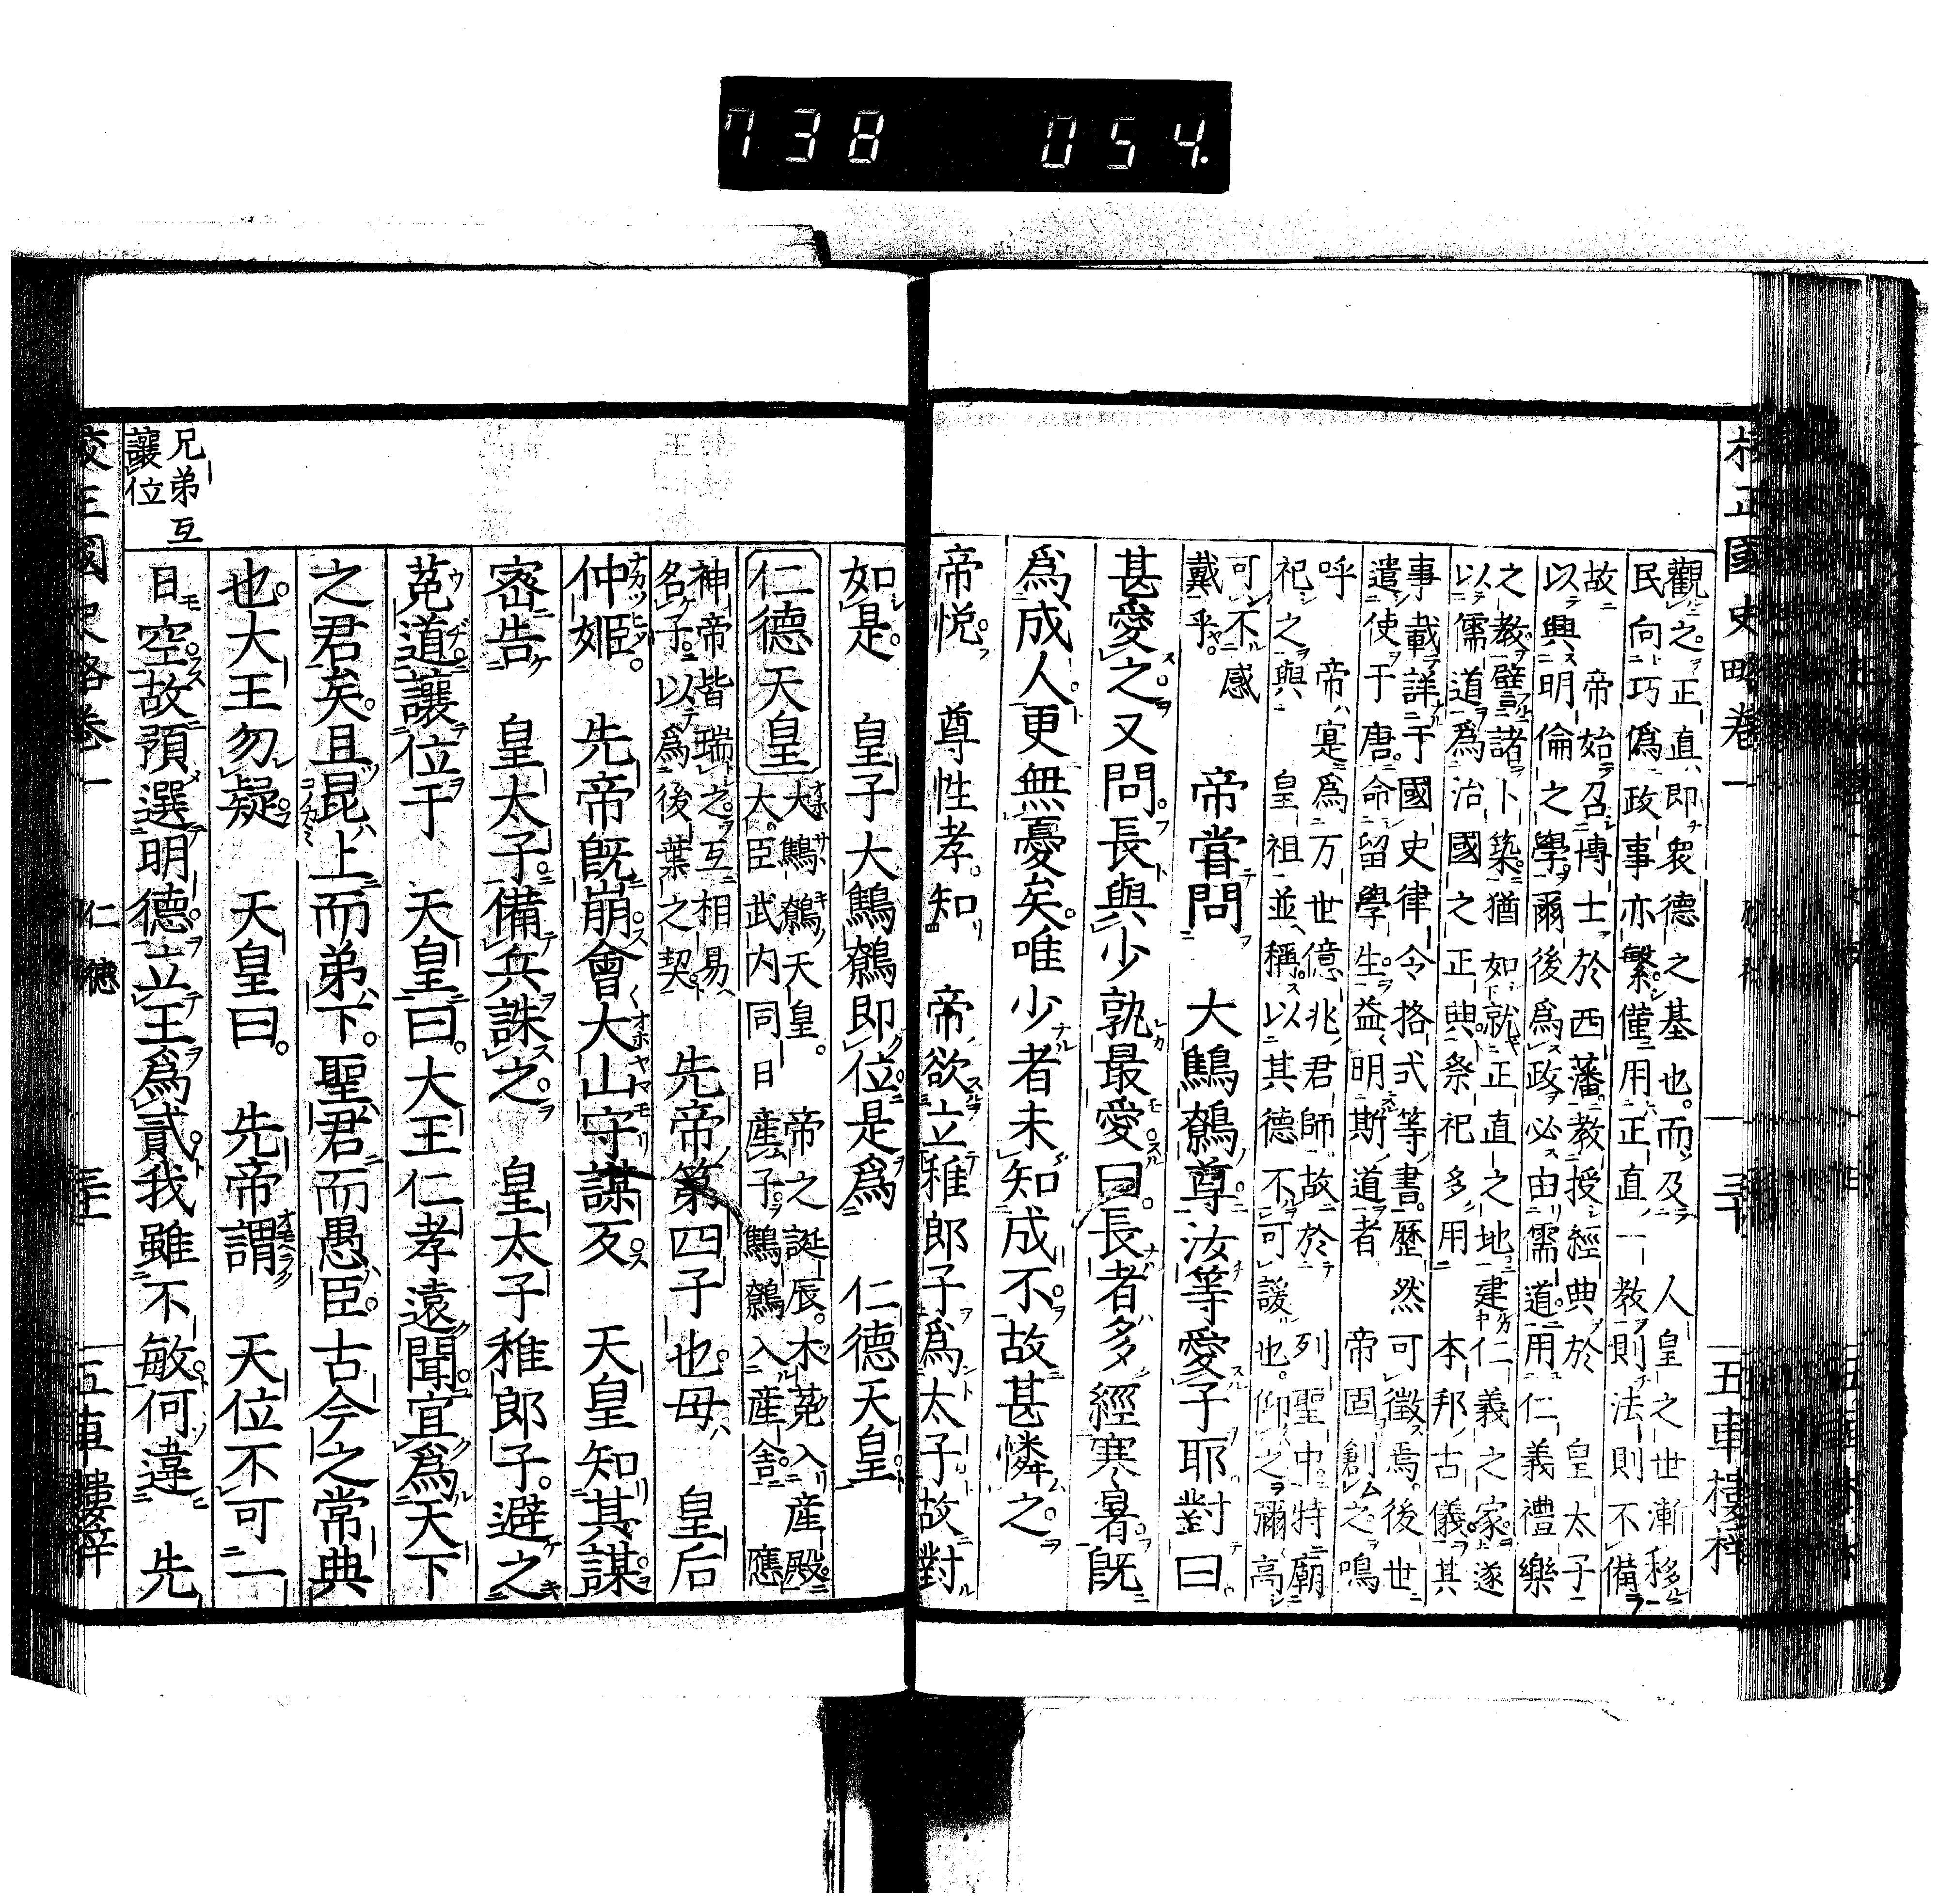 738 054
校正國史略卷一 三十 五車樓梓
觀之正直即衆德之基也而及 人皇之世漸移
民向巧僞政事亦繁僅用正直一教則法則不備
故 帝始召博士於西藩教授經典於 皇太子
以興明倫之學爾後爲政必由儒道用仁義禮樂
之教譬諸卜築猶如就正直之地建仁義之家遂
以儒道爲治國之正與祭祀多用 本邦古儀其
事載詳于國史律令格式等書歷然可徵焉後世
遣使于唐命留學生益明斯道者 帝固創之鳴
呼 帝寔爲万世億兆君師故於 列聖中特廟
祀之與 皇祖並稱以其德不可諼也仰之彌高
可不感
戴乎 帝嘗問 大鷦鷯尊汝等愛子耶對曰
甚愛之又問長與少孰最愛曰長者多經寒暑既
爲成人更無憂矣唯少者未知成不故甚憐之
帝悅 尊性孝知 帝欲立稚郎子爲太子故對
如是 皇子大鷦鷯即位是爲 仁德天皇
仁德天皇 大鷦鷯天皇 帝之誕辰木菟入産殿
大臣武内同日産子鷦鷯入産舍應
神帝皆瑞之互相易
名子以爲後葉之契 先帝第四子也母 皇后
仲姬 先帝既崩會大山守謀反 天皇知其謀
密告 皇太子備兵誅之 皇太子稚郎子避之
菟道讓位于 天皇曰大王仁孝遠聞宜爲天下
之君矣且昆上而弟下聖君而愚臣古今之常典
也大王勿疑 天皇曰 先帝謂 天位不可一
日空故預選明德立王爲貳我雖不敏何違 先
兄弟互
讓位
國史略卷一 仁德 三十一 五車樓梓